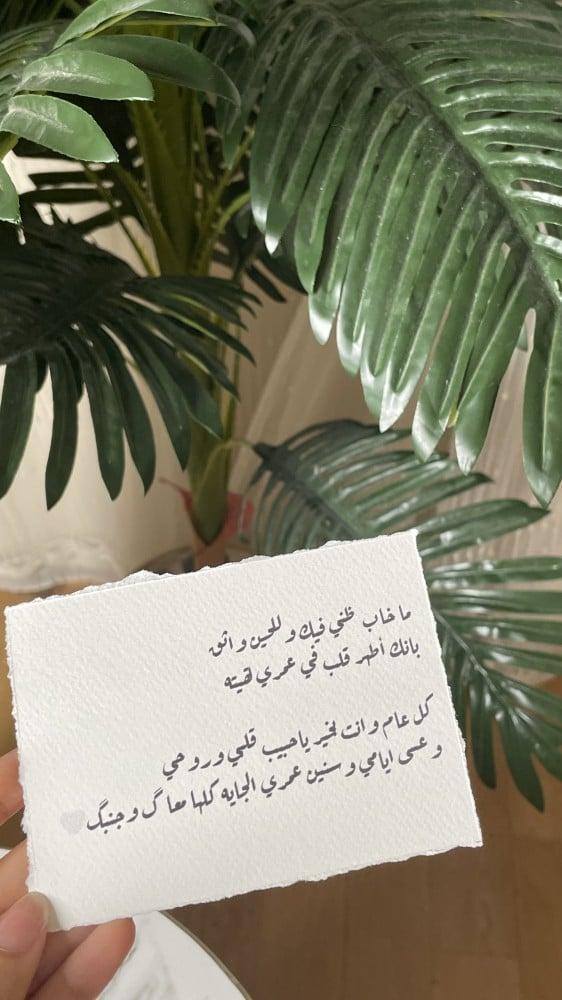 ما خاب ظني فيك و للحين واثق
بانك أطهر قلب في عمري لقيته
كل عام وانت بخير ياحبيب قلبي وروحي
وعسى ايامي و سنين عمري الجايه كلها معاگ وجنبگ